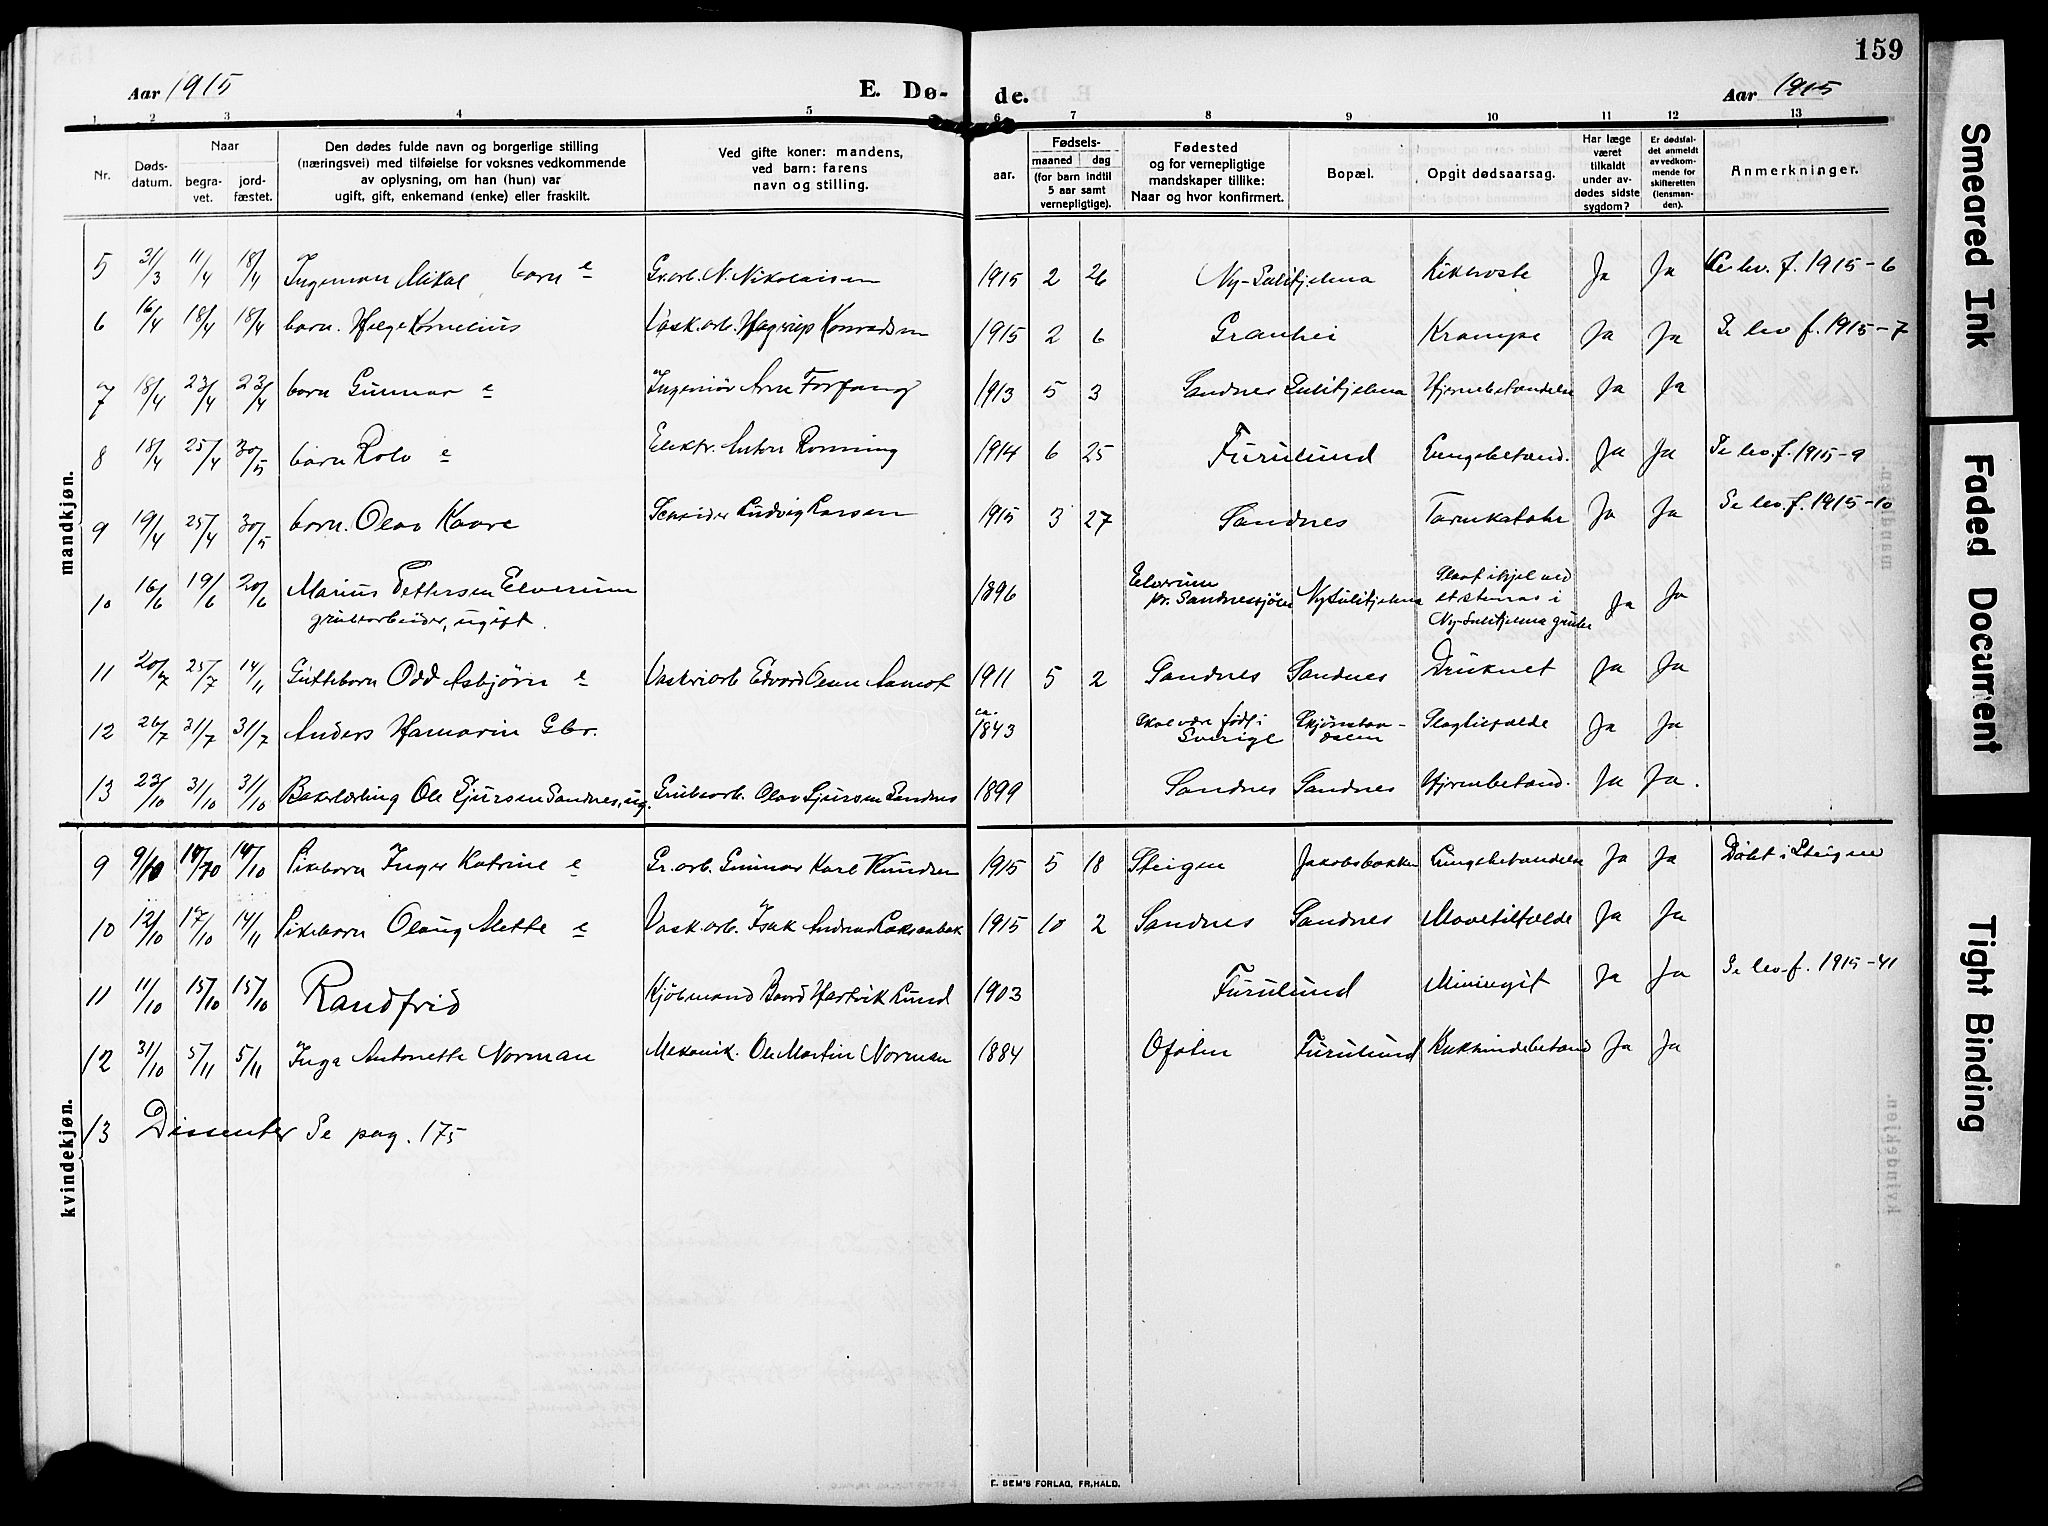 159
Aar 1915
E. Dø-
de.
Aar 1915
1 2 3 4 5 6 7 8 9 10 11 12 13
Nr.
Døds-
datum.
Naar
begra-
vet.
jord-
fæstet.
Den dødes fulde navn og borgerlige stilling
(næringsvei) med tilføielse for voksnes vedkommende
av oplysning, om han (hun) var
ugift, gift, enkemand (enke) eller fraskilt.
Ved gifte koner: mandens,
ved barn: farens
navn og stilling.
Fødsels-
aar.
maaned
dag
(for barn indtil
5 aar samt
vernepligtige).
Fødested
og for vernepligtige
mandskaper tillike:
Naar og hvor konfirmert.
Bopæl.
Opgit dødsaarsag.
Har læge
været
tilkaldt
under av-
dødes sidste
sygdom?
Er dødsfal-
det anmeldt
av vedkom-
mende for
skifteretten
(lensman-
den).
Anmerkninger.
mandkjøn.
5 31/3 11/4 18/4 Ingeman Mikal barn e Gr.arb. N. Nikolaisen 1915 2 26 Ny-Sulitjelma Kikhoste Ja Ja Se lev. f. 1915-6
6 16/4 18/4 18/4 barn. Helge Kornelius Vask.arb. Hagerup Konradsen 1915 2 6 Granhei Krampe Ja Ja Se lev f. 1915-7
7 18/4 23/4 23/4 barn Gunnar e Ingeniør Arne Forfang 1913 5 3 Sandnes Sulitjelma Hjernebetændelse Ja Ja
8 18/4 25/4 30/5 barn Rolv e Elektr. Anton Rønning 1914 6 25 Furulund Lungebetænd. Ja Ja Se lev. f. 1915-9
9 19/4 25/4 30/5 barn. Olav Kaare Scheider Ludvig Larsen 1915 3 27 Sandnes Tarmkatahr Ja Ja Se lev. f. 1915-10
10 16/6 19/6 20/6 Marius Pettersen Elverum
grubearbeider, ugift.
1896 Elverum
pr. Sandnessjøen Ny Sulitjelma Slaat ihjel ved
et stenras i
Ny-Sulitjelma grube Ja Ja
11 20/7 25/7 14/11 Guttebarn Odd Asbjørn e Vaskeriarb Edvard Olsen Aamot 1911 5 2 Sandnes Sandnes Druknet Ja Ja
12 26/7 31/7 31/7 Anders Hamarin Gbr. ca.
1843 Skal være født i
Sverige Skjønstaa-
dalen Slagtilfælde Ja Ja
13 23/10 31/10 31/10 Bakerlærling Ole Sjursen Sandnes, ug. Grubearb. Olav Sjursen Sandnes 1899 Sandnes Sandnes Hjernebetænd. Ja Ja.
kvindekjøn.
9 9/10 14/10 14/10 Pikebarn Inger Katrine e Gr. arb. Gunnar Karl Knudsen 1915 5 18 Steigen Jakobsbakken Lungebetændelse Ja Ja Døbt i Steigen
10 12/10 17/10 14/11 Pikebarn Olaug Mette e Vask.arb. Isak Andreas Laksaabak 1915 10 2 Sandnes Sandnes Mavetilfælde Ja Ja
11 11/10 15/10 15/10 Randfrid Kjøbmand Baard Hartvik Lund 1903 Furulund Miningit Ja Ja Se lev. f. 1915-41
12 31/10 5/11 5/11 Inga Antonette Norman Mekanik. Ole Martin Norman 1884 Ofoten Furulund Bukhindebetænd Ja Ja
13 Dissenter Se pag. 175
E. SEM'S FORLAG, FR.HALD.
Smeared Ink
Faded Document
Tight Binding